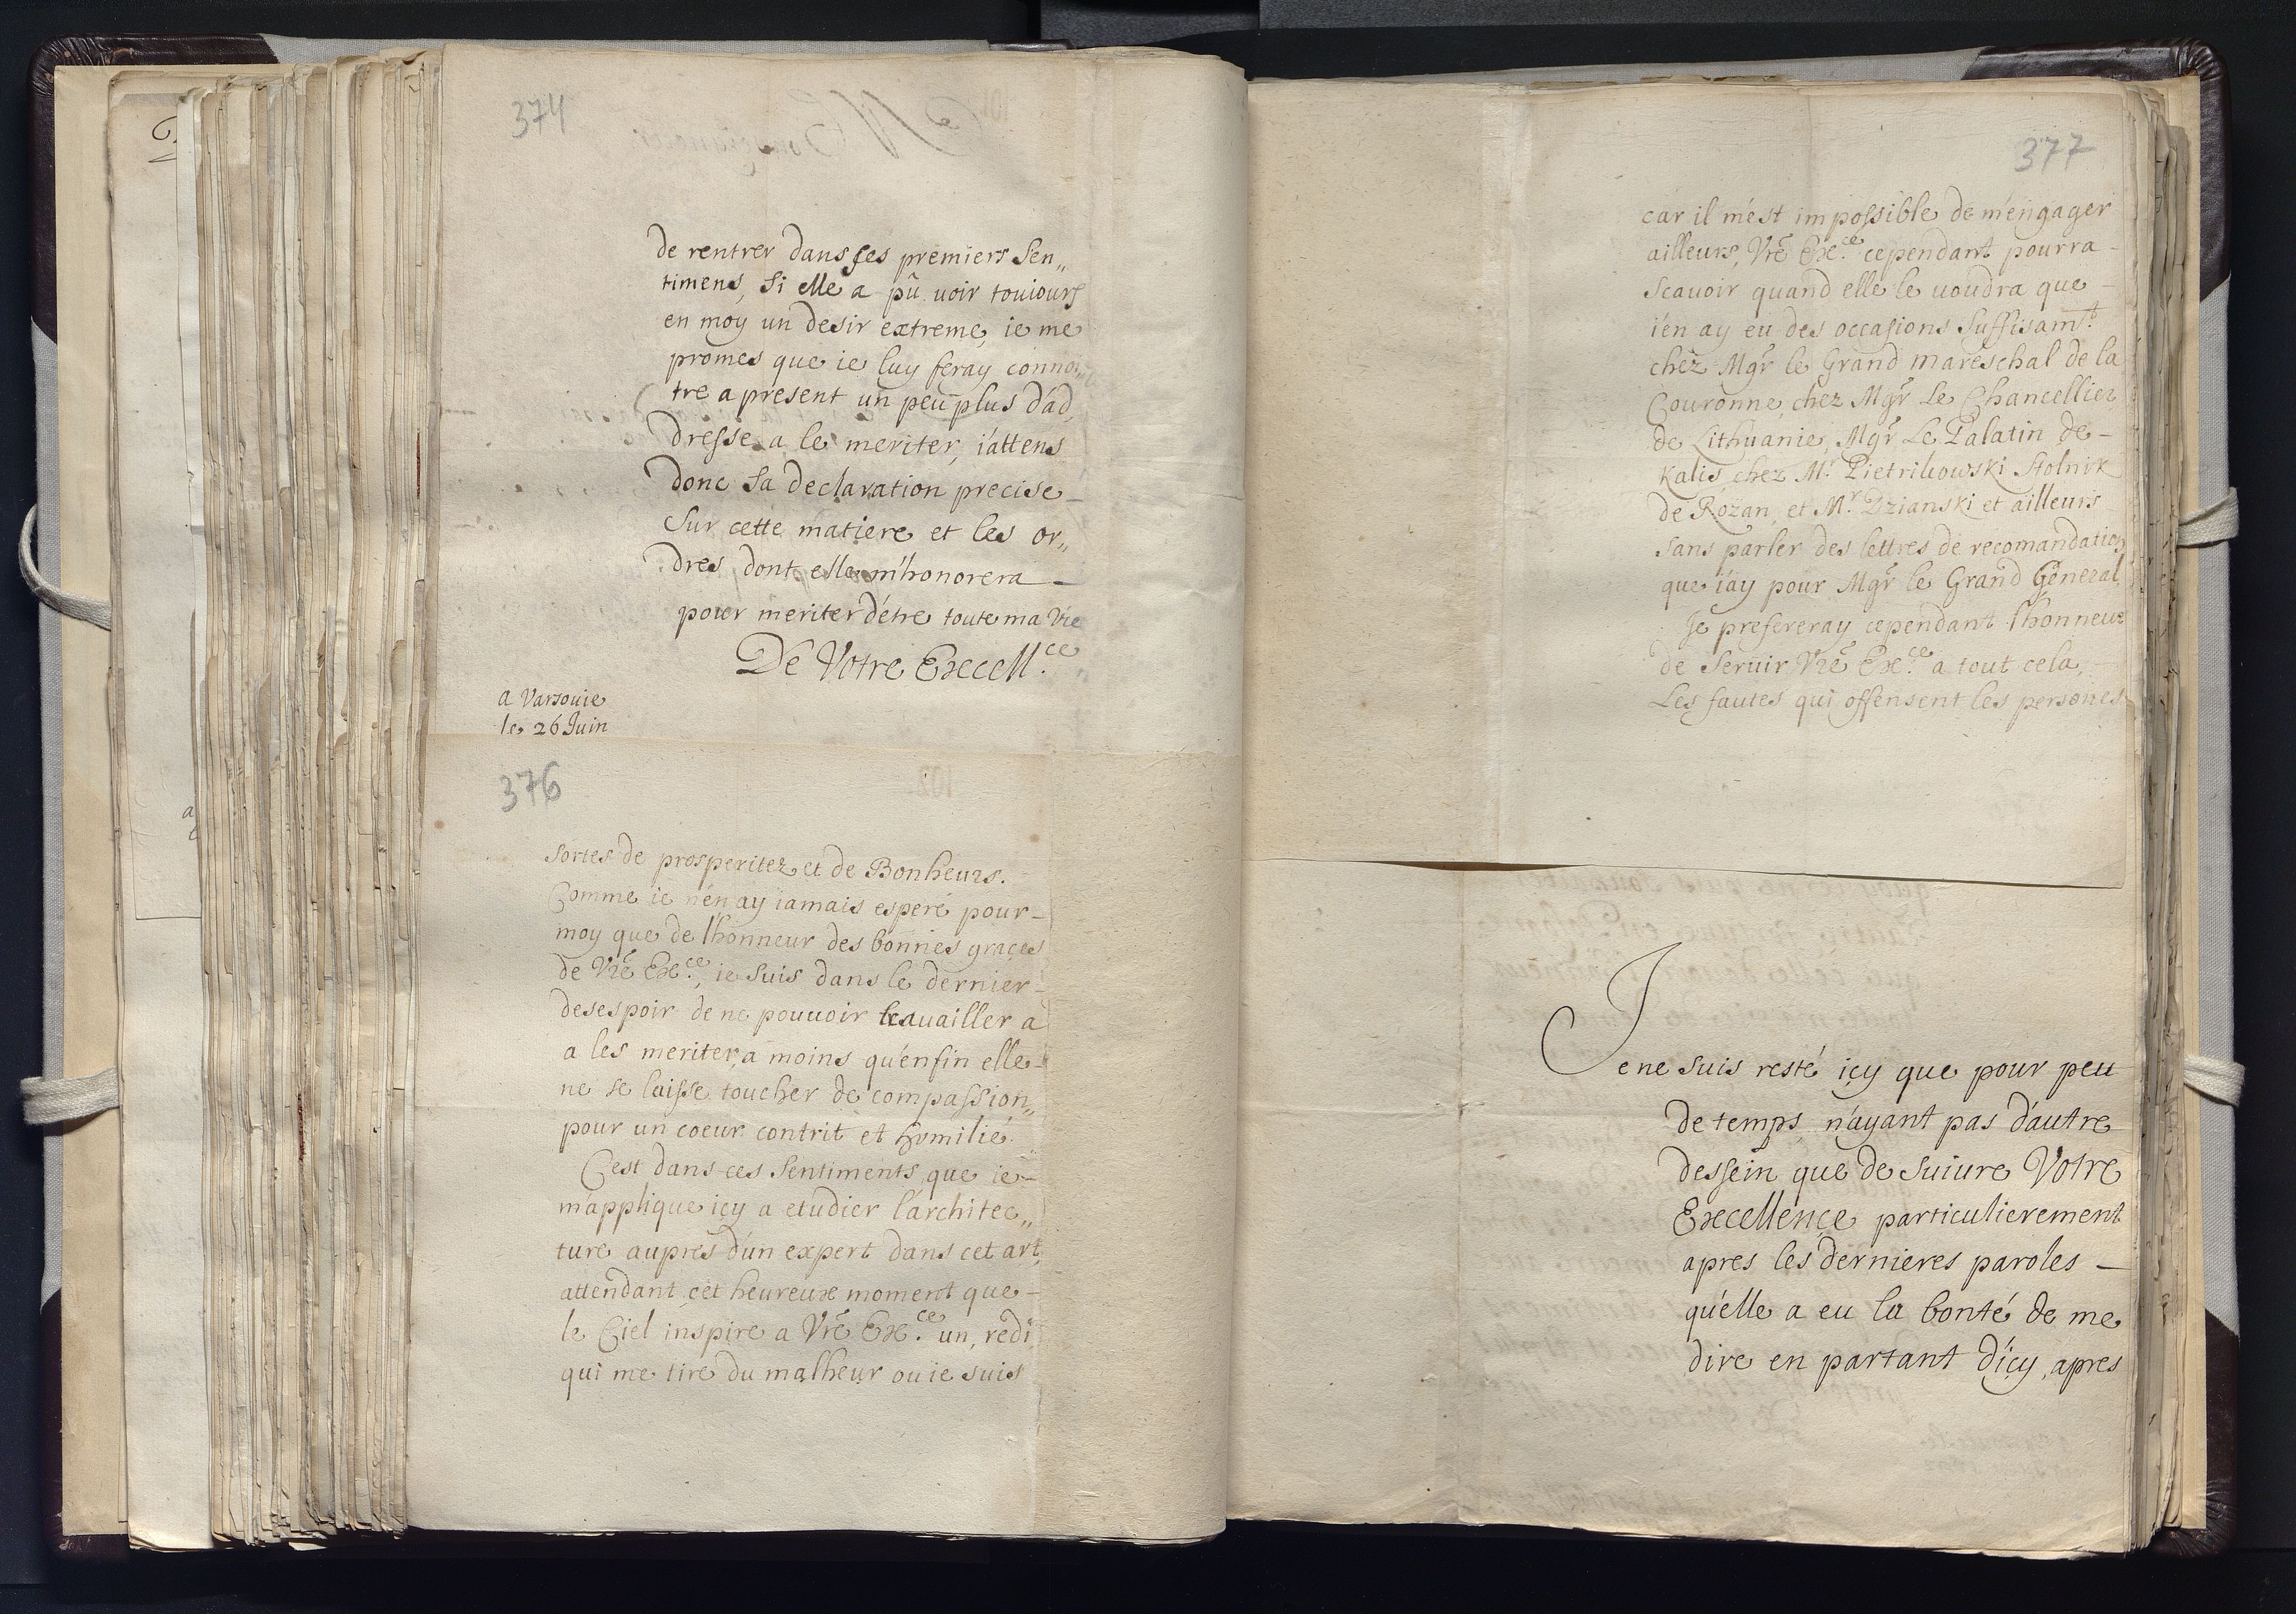 374
de rentrer dans ses premiers sen„
timens, si elle a pû voir touiours
en moy un desir extreme, ie me
promes que ie luy feray connoi„
tre a present un peu plus d'ad„
dresse a le meriter, i'attens
donc sa declaration precise
sur cette matiere et les or„
dres dont elle m'honorera
pour meriter d'étre toute ma vie
De Votre Excell.ce
a Varsovie
le 26 Juin
376
sortes de prosperitez et de Bonheurs.
Comme ie n'en ay iamais esperé pour
moy que de l'honneur des bonnes graces
de Vrẽ Ex.ce, ie suis dans le dernier
desespoir de ne pouuoir trauailler a
a les meriter, a moins qu'enfin elle
ne se laisse toucher de compassion„
pour un coeur contrit et humilié.
C'est dans ces sentiments que ie
m'applique icy a etudier l'architec„
ture aupres d'un expert dans cet art
attendant cet heureux moment que
le Ciel inspire a Vrẽ Ex.ce un, redi
qui me tire du malheur ou ie suis
377
car il m'est impossible de m'engager
ailleurs, Vrẽ Ex.ce cependant pourra
scauoir quand elle le uoudra que
i'en ay eu des occasions suffisam.t
chez Mgr le Grand mareschal de la
Couronne, chez Mgr Le Chancellier
de Lithuanie, Mgr Le Palatin de
Kalis chez Mr. Pietrikowski Stolnik
de Rozan, et Mr. Dzianski et ailleurs
sans parler des lettres de recomandation
que i'ay pour Mgr le Grand General
Je prefereray cependant l'honneur
de seruir Vrẽ Ex.ce a tout cela,
Les fautes qui offensent les persones
Je ne suis resté icy que pour peu
de temps, n'ayant pas d'autre
dessein que de suiure Votre
Excellence particulierement
apres les dernieres paroles
qu'elle a eu la bonté de me
dire en partant d'icy, apres